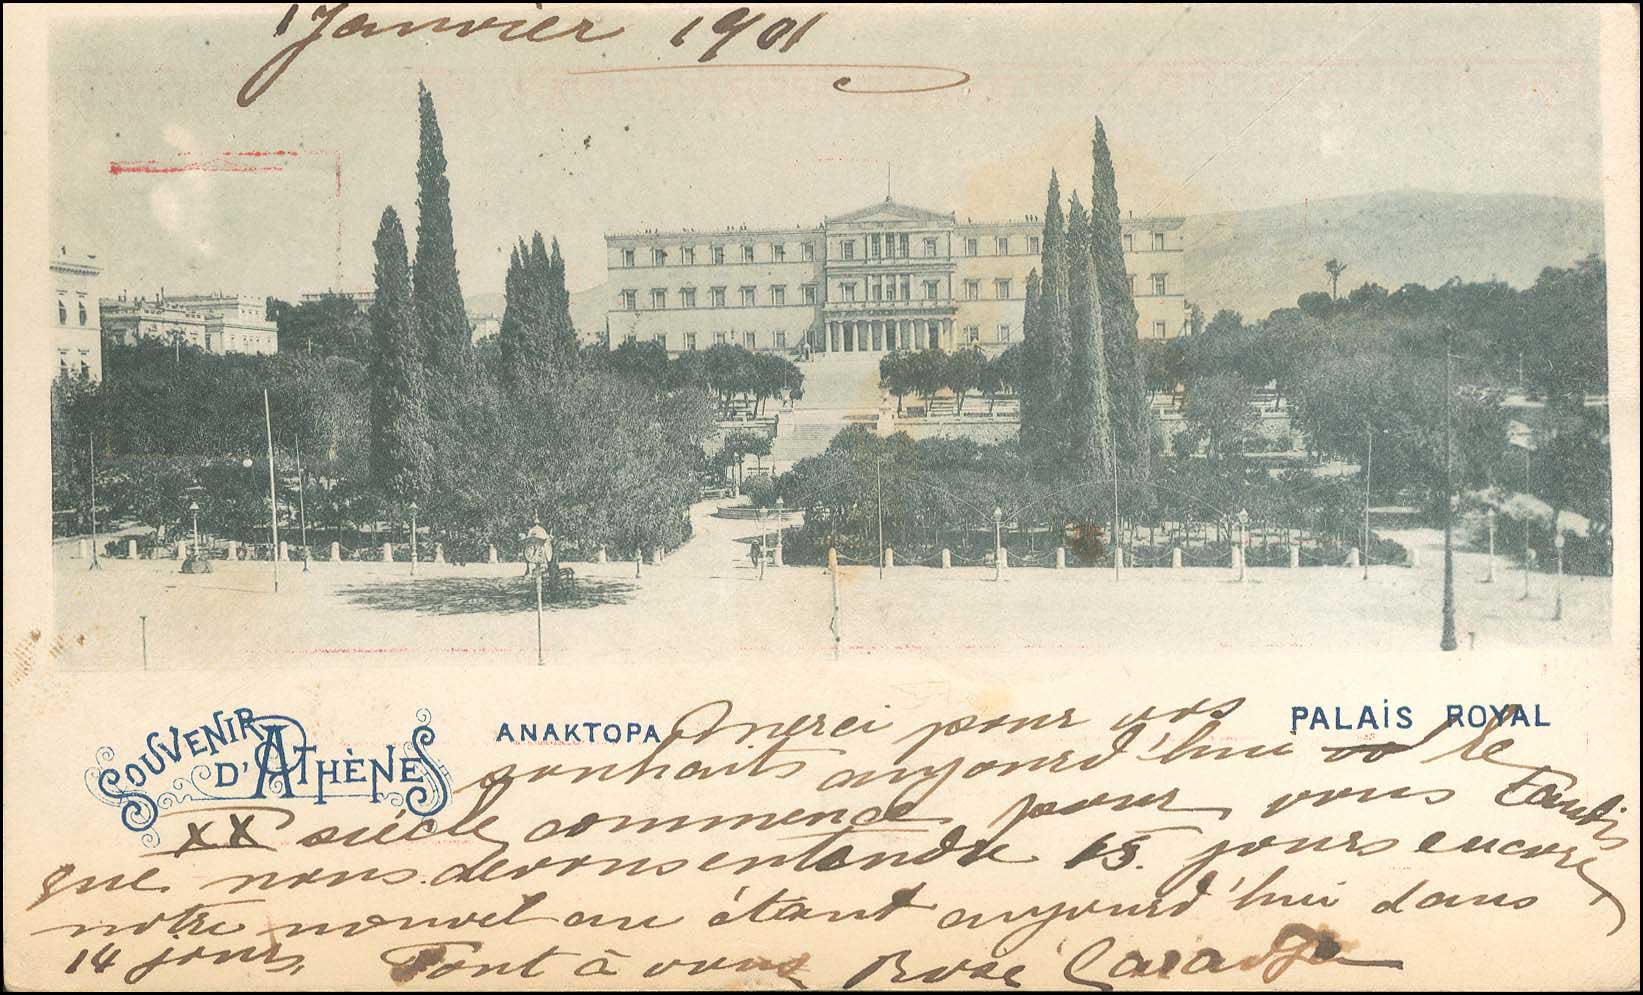 1 Janvier 1901
SOUVENIR
D'ATHÈNES
ΑΝΑΚΤΟΡΑ
PALAIS ROYAL
Merci pour vos
souhaits aujourd'hui le
XXe siècle commence pour vous Tandis
que nous devons entendre 15 jours encore
notre nouvel an étant aujourd'hui dans
14 jours. Tout à vous Rose